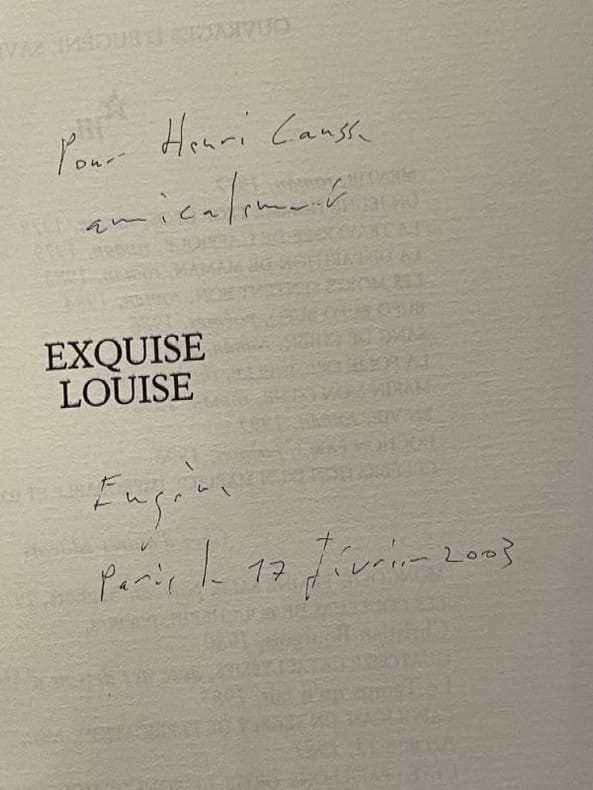 Pour Henri Causse
amicalement
EXQUISE
LOUISE
Eugène
Paris le 17 février 2003